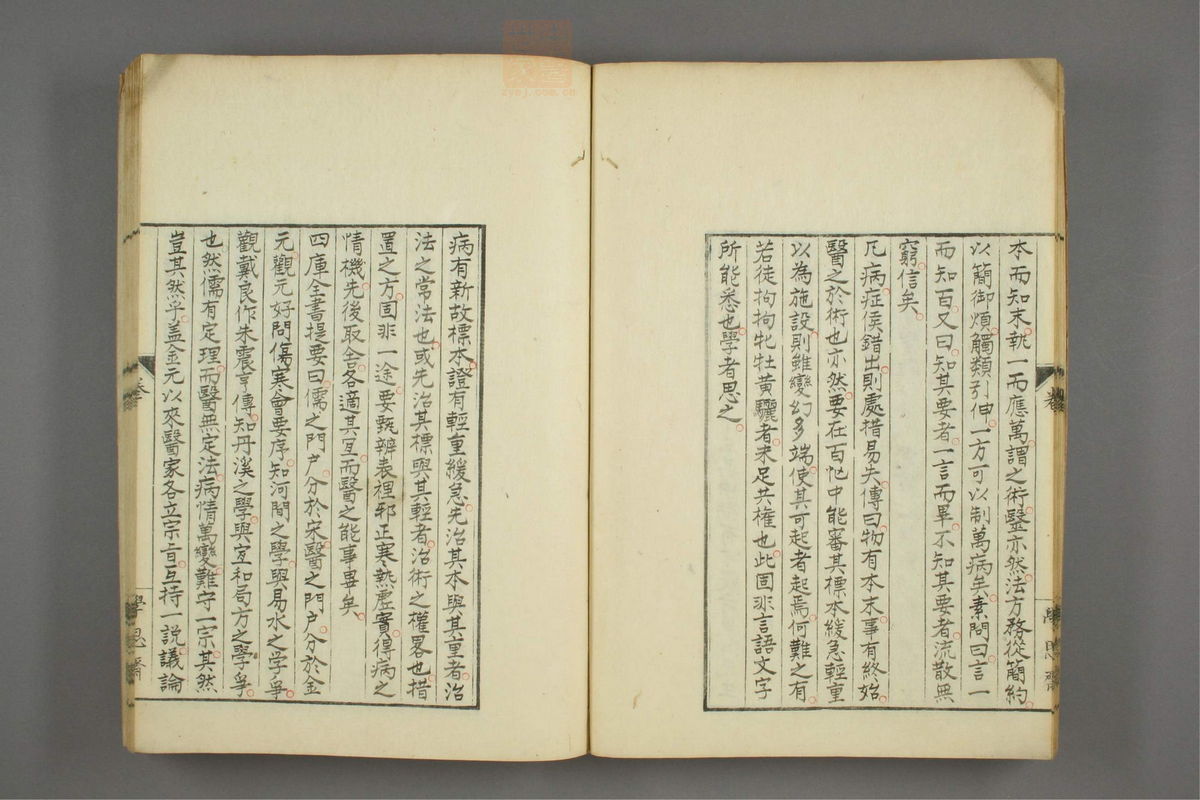 本而知末執一而應萬謂之術毉亦然法方務從簡約
以簡御煩觸類引伸一方可以制萬病矣素問曰言一
而知百又曰知其要者一言而畢不知其要者流散無
窮信矣
凡病症候錯出則處措易失傳曰物有本末事有終始
醫之於術也亦然要在百忙中能審其標本緩急輕重
以為施設則雖變幻多端使其可起者起焉何難之有
若徒拘拘牝牡黄驪者未足共権也此固非言語文字
所能悉也學者思之
病有新故標本證有輕重緩急先治其本與其重者治
法之常法也或先治其標與其輕者治術之權畧也措
置之方固非一途要甄辨表裡邪正寒熱虛實得病之
情機先後取舍各適其宜而醫之能事畢矣
四庫全書提要曰儒之門户分於宋醫之門户分於金
元觀元好問傷寒會要序知河間之學與易水之学爭
觀戴良作朱震亨傳知丹溪之學與宣和局方之學爭
也然儒有定理而醫無定法病情萬變難守一宗其然
豈其然乎盖金元以來醫家各立宗旨互持一説議論
卷
學思齋
zyyj.com.cn